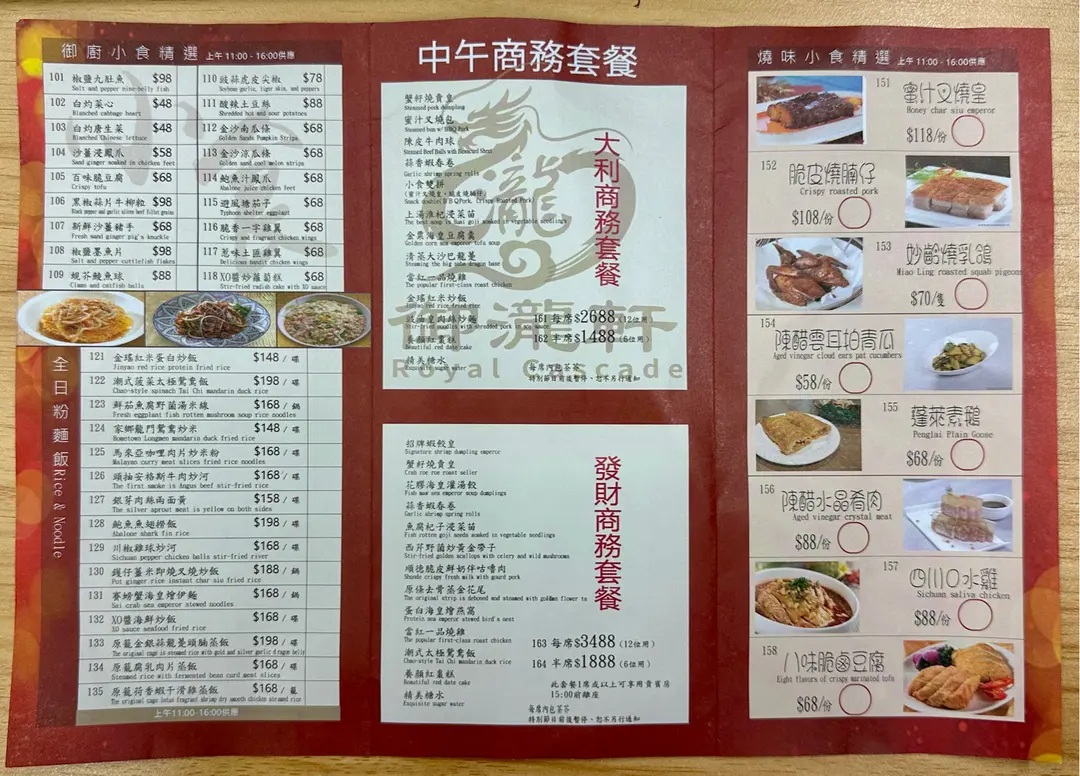 御廚小食精選 上午11:00 - 16:00供應
101 椒鹽九肚魚 $98
Salt and pepper nine-belly fish
102 白灼菜心 $48
Blanched cabbage heart
103 白灼唐生菜 $48
Blanched Chinese lettuce
104 沙薑浸鳳爪 $58
Sand ginger soaked in chicken feet
105 百味脆豆腐 $68
Crispy tofu
106 黑椒蒜片牛柳粒 $98
Black pepper and garlic slices beef fillet grains
107 新鮮沙薑豬手 $68
Fresh sand ginger pig's knuckle
108 椒鹽墨魚片 $98
Salt and pepper cuttlefish flakes
109 蜆芥鯪魚球 $88
Clams and catfish balls
110 豉蒜虎皮尖椒 $78
Soybean garlic, tiger skin, and peppers
111 酸辣土豆絲 $88
Shredded hot and sour potatoes
112 金沙南瓜條 $68
Golden Sands Pumpkin Strips
113 金沙涼瓜條 $68
Golden sand cool melon strips
114 鮑魚汁鳳爪 $68
Abalone juice chicken feet
115 避風塘茄子 $68
Typhoon shelter eggplant
116 脆香一字雞翼 $68
Crispy and fragrant chicken wings
117 惹味土匪雞翼 $68
Delicious bandit chicken wings
118 XO醬炒蘿蔔糕 $68
Stir-fried radish cake with XO sauce
全日粉麵飯 Rice & Noodle
121 金瑤紅米蛋白炒飯 $148 / 碟
Jinyao red rice protein fried rice
122 潮式菠菜太極鴛鴦飯 $198 / 碟
Chao-style spinach Tai Chi mandarin duck rice
123 鮮茄魚腐野菌湯米線 $168 / 鍋
Fresh eggplant fish rotten mushroom soup rice noodles
124 家鄉龍門鴛鴦炒米 $148 / 碟
Hometown Longmen mandarin duck fried rice
125 馬來亞咖哩肉片炒米粉 $168 / 碟
Malayan curry meat slices fried rice noodles
126 頭抽安格斯牛肉炒河 $168 / 碟
The first smoke is Angus beef stir-fried rice
127 銀芽肉絲兩面黃 $158 / 碟
The silver sprout meat is yellow on both sides
128 鮑魚魚翅撈飯 $198 / 碟
Abalone shark fin rice
129 川椒雞球炒河 $168 / 碟
Sichuan pepper chicken balls stir-fried river
130 鑊仔薑米即燒叉燒炒飯 $188 / 鍋
Pot ginger rice instant char siu fried rice
131 賽螃蟹海皇燴伊麵 $168 / 鍋
Sai crab sea emperor stewed noodles
132 XO醬海鮮炒飯 $168 / 碟
XO sauce seafood fried rice
133 原籠金銀蒜龍躉頭腩蒸飯 $198 / 碟
The original cage is steamed rice with gold and silver garlic dragon belly
134 原籠腐乳肉片蒸飯 $168 / 碟
Steamed rice with fermented bean curd meat slices
135 原籠荷香蝦干滑雞蒸飯 $168 / 籠
The original cage lotus fragrant shrimp dry smooth chicken steamed rice
上午11:00-16:00供應
中午商務套餐
蟹籽燒賣皇
Steamed pork dumpling
蜜汁叉燒包
Steamed bun w/ BBQ Pork
陳皮牛肉球
Steamed Beef Balls with Beancurd Sheet
蒜香蝦春卷
Garlic shrimp spring rolls
小食雙拼
(蜜汁叉燒皇，脆皮燒腩仔)
Snack double( B B Q Pork, Crispy Roasted Pork)
上湯淮杞浸菜苗
The best soup is Huai goji soaked in vegetable seedlings
金粟海皇豆腐羹
Golden corn sea emperor tofu soup
清蒸大沙巴龍躉
Steaming the big saba dragon base
當紅一品燒雞
The popular first-class roast chicken
金瑤紅米炒飯
Jinyao red rice fried rice
豉油皇肉絲炒麵
Stir-fried noodles with shredded pork in soy sauce
養顏紅棗糕
Beautiful red date cake
精美糖水
Exquisite sugar water
大利商務套餐
161 每席$2688(12位用)
162 半席$1488(6位用)
每席內包茶芥
特別節日前後暫停、恕不另行通知
御瀧軒
Royal Cascade
招牌蝦餃皇
Signature shrimp dumpling emperor
蟹籽燒賣皇
Crab roe roe roast seller
花膠海皇灌湯餃
Fish maw sea emperor soup dumplings
蒜香蝦春卷
Garlic shrimp spring rolls
魚腐杞子浸菜苗
Fish rotten goji seeds soaked in vegetable seedlings
西芹野菌炒黃金帶子
Stir-fried golden scallops with celery and wild mushrooms
順德脆皮鮮奶伴咕嚕肉
Shunde crispy fresh milk with gourd pork
原條去骨蒸金花尾
The original strip is deboned and steamed with golden flower ta
蛋白海皇燴燕窩
Protein sea emperor stewed bird's nest
當紅一品燒雞
The popular first-class roast chicken
潮式太極鴛鴦飯
Chao-style Tai Chi mandarin duck rice
養顏紅棗糕
Beautiful red date cake
精美糖水
Exquisite sugar water
發財商務套餐
163 每席$3488(12位用)
164 半席$1888(6位用)
此套餐1席或以上可享用貴賓房
15:00前離座
每席內包茶芥
特別節日前後暫停、恕不另行通知
燒味小食精選 上午11:00 - 16:00供應
151 蜜汁叉燒皇
Honey char siu emperor
$118/份
152 脆皮燒腩仔
Crispy roasted pork
$108/份
153 妙齡燒乳鴿
Miao Ling roasted squab pigeons
$70/隻
154 陳醋雲耳拍青瓜
Aged vinegar cloud ears pat cucumbers
$58/份
155 蓬萊素鵝
Penglai Plain Goose
$68/份
156 陳醋水晶肴肉
Aged vinegar crystal meat
$88/份
157 四川口水雞
Sichuan saliva chicken
$88/份
158 八味脆鹵豆腐
Eight flavors of crispy marinated tofu
$68/份